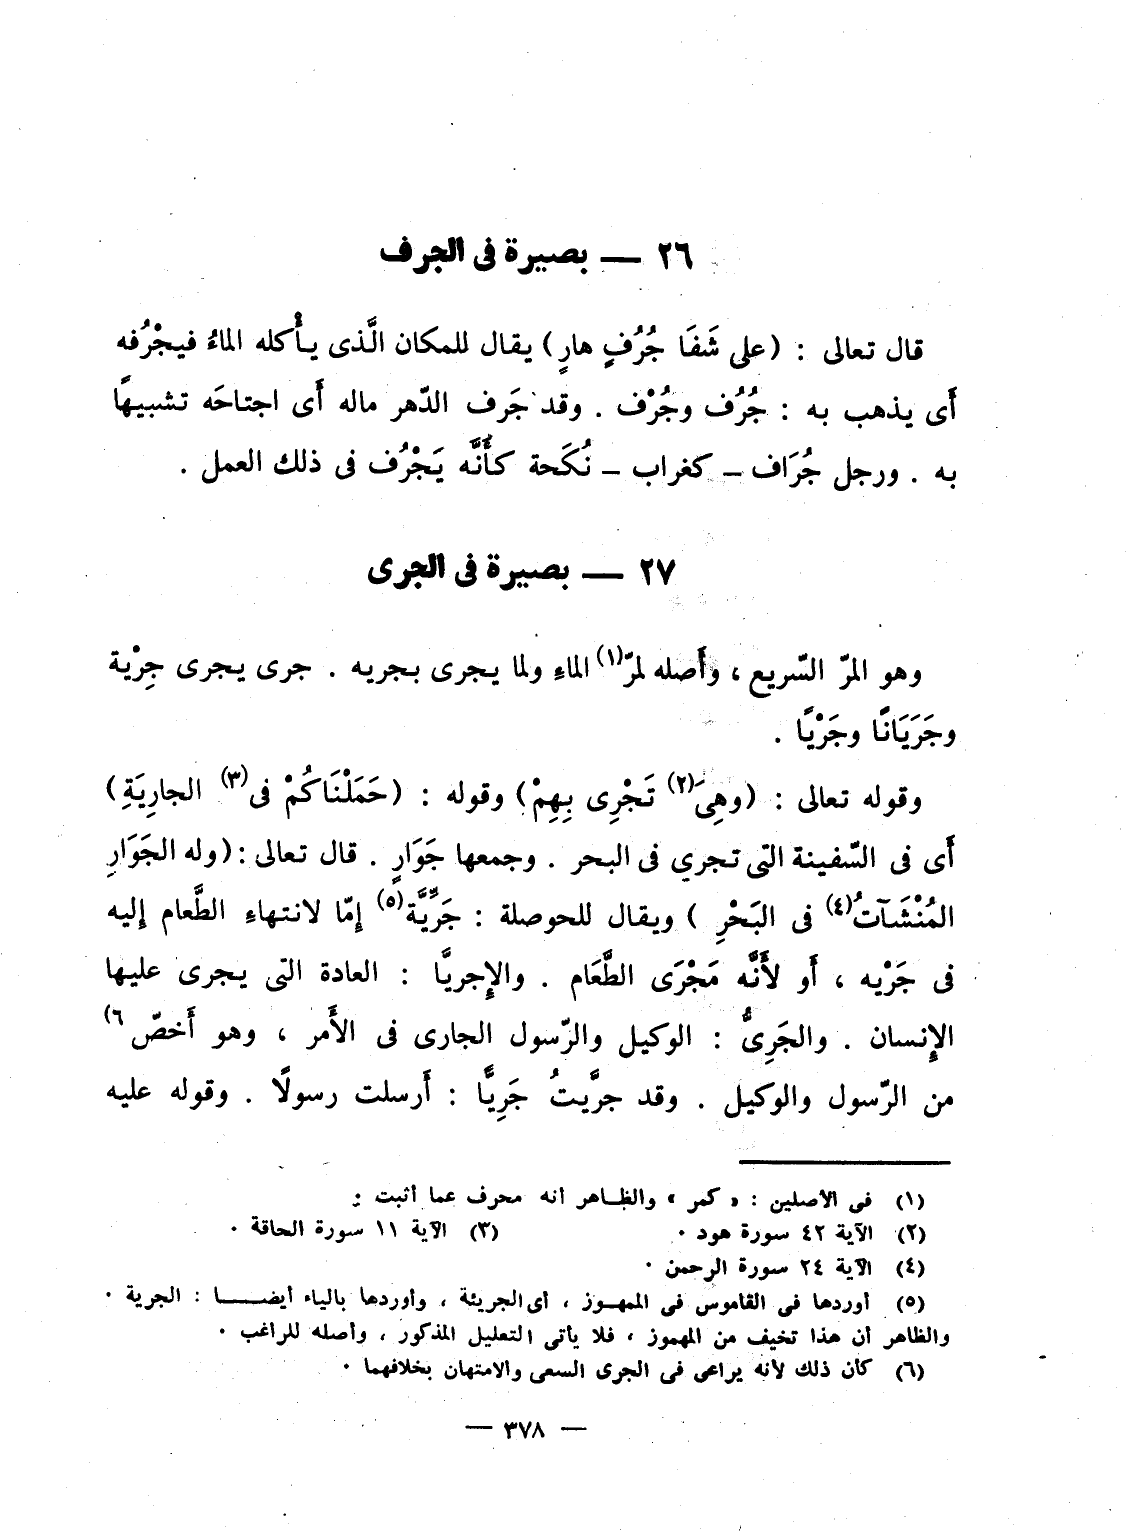 ٢٦ — بصيرة فى الجرف
قال تعالى : (على شَفَا جُرُفٍ هارٍ) يقال للمكان الَّذى يأْكله الماءُ فيجْرُفه
أَى يذهب به : جُرُف وجُرْف . وقد جَرف الدّهر ماله أَى اجتاحَه تشبيهًا
به . ورجل جُرَاف – كغراب – نُكَحة كأَنَّه يَجْرُف فى ذلك العمل .
٢٧ — بصيرة فى الجرى
وهو المرّ السّريع ، وأَصله لمرّ(١) الماءِ ولما يجرى بجريه . جرى يجرى جِرْية
وجَرَيَانًا وجَرْيًا .
وقوله تعالى : (وهِىَ(٢) تَجْرِى بِهِمْ) وقوله : (حَمَلْنَاكُمْ فى(٣) الجارِيَةِ)
أَى فى السّفينة التى تجري فى البحر . وجمعها جَوَارٍ . قال تعالى : (وله الجَوَارِ
المُنْشَآتُ(٤) فى البَحْرِ ) ويقال للحوصلة : جَرِّيَّة(٥) إِمّا لانتهاءِ الطَّعام إِليه
فى جَرْيه ، أَو لأَنَّه مَجْرَى الطَّعَام . والإِجريَّا : العادة التى يجرى عليها
الإِنسان . والجَرِىُّ : الوكيل والرّسول الجارى فى الأَمر ، وهو أَخصّ ٦)
من الرّسول والوكيل . وقد جرَّيتُ جَرِيًّا : أَرسلت رسولًا . وقوله عليه
(١) فى الأصلين : « كمر » والظاهر أنه محرف عما أثبت .
(٢) الآية ٤٢ سورة هود . (٣) الآية ١١ سورة الحاقة .
(٤) الآية ٢٤ سورة الرحمن .
(٥) أوردها فى القاموس فى المهموز ، أى الجريئة ، وأوردها بالياء أيضا : الجرية .
والظاهر أن هذا تخيف من المهموز ، فلا يأتى التعليل المذكور ، وأصله للراغب .
(٦) كان ذلك لأنه يراعى فى الجرى السعى والامتهان بخلافهما .
— ٣٧٨ —